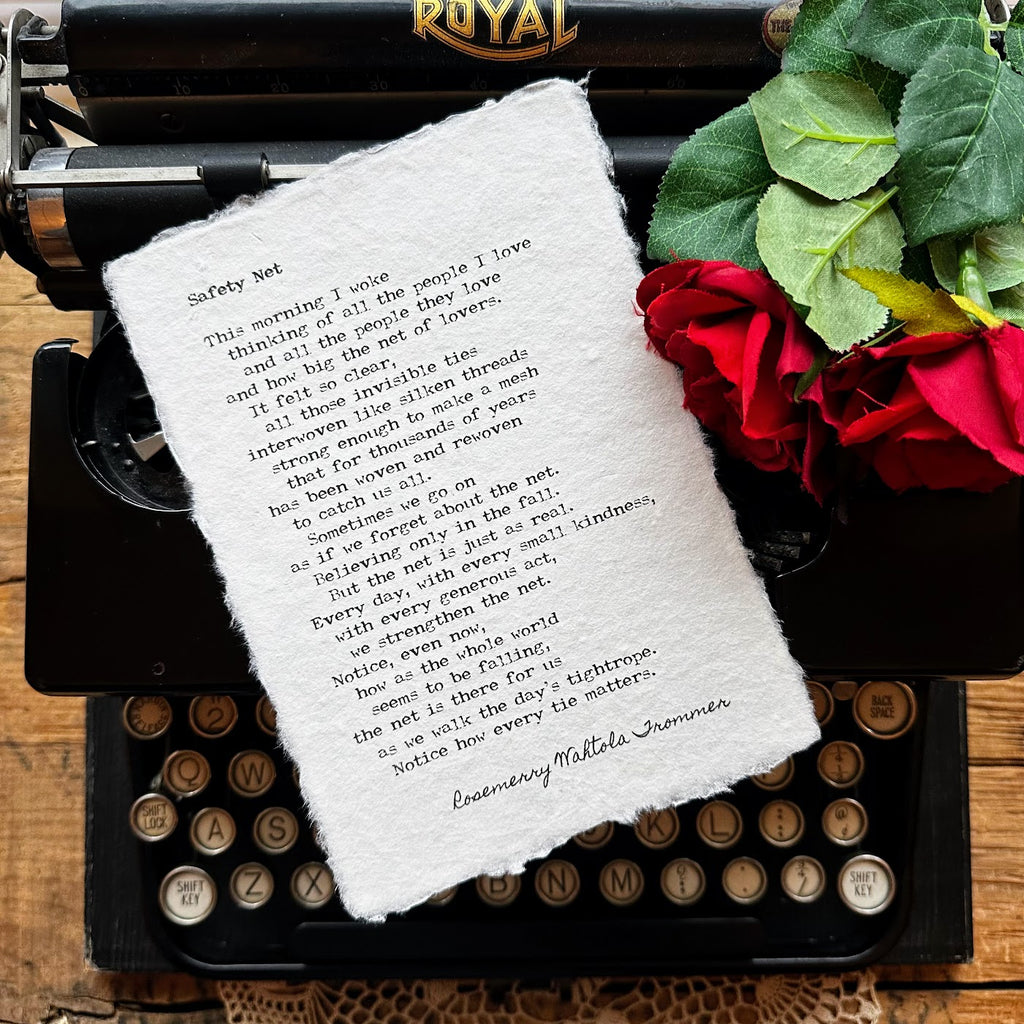 ROYAL
THE
10
Safety Net
This morning I woke
thinking of all the people I love
and all the people they love
and how big the net of lovers.
It felt so clear,
all those invisible ties
interwoven like silken threads
strong enough to make a mesh
that for thousands of years
has been woven and rewoven
to catch us all.
Sometimes we go on
as if we forget about the net.
Believing only in the fall.
But the net is just as real.
Every day, with every small kindness,
with every generous act,
we strengthen the net.
Notice, even now,
how as the whole world
seems to be falling,
the net is there for us
as we walk the day's tightrope.
Notice how every tie matters.
Rosemerry Wahtola Trommer
2 BACK SPACE
Q W
SHIFT LOCK A S K L
SHIFT KEY Z X B N M SHIFT KEY